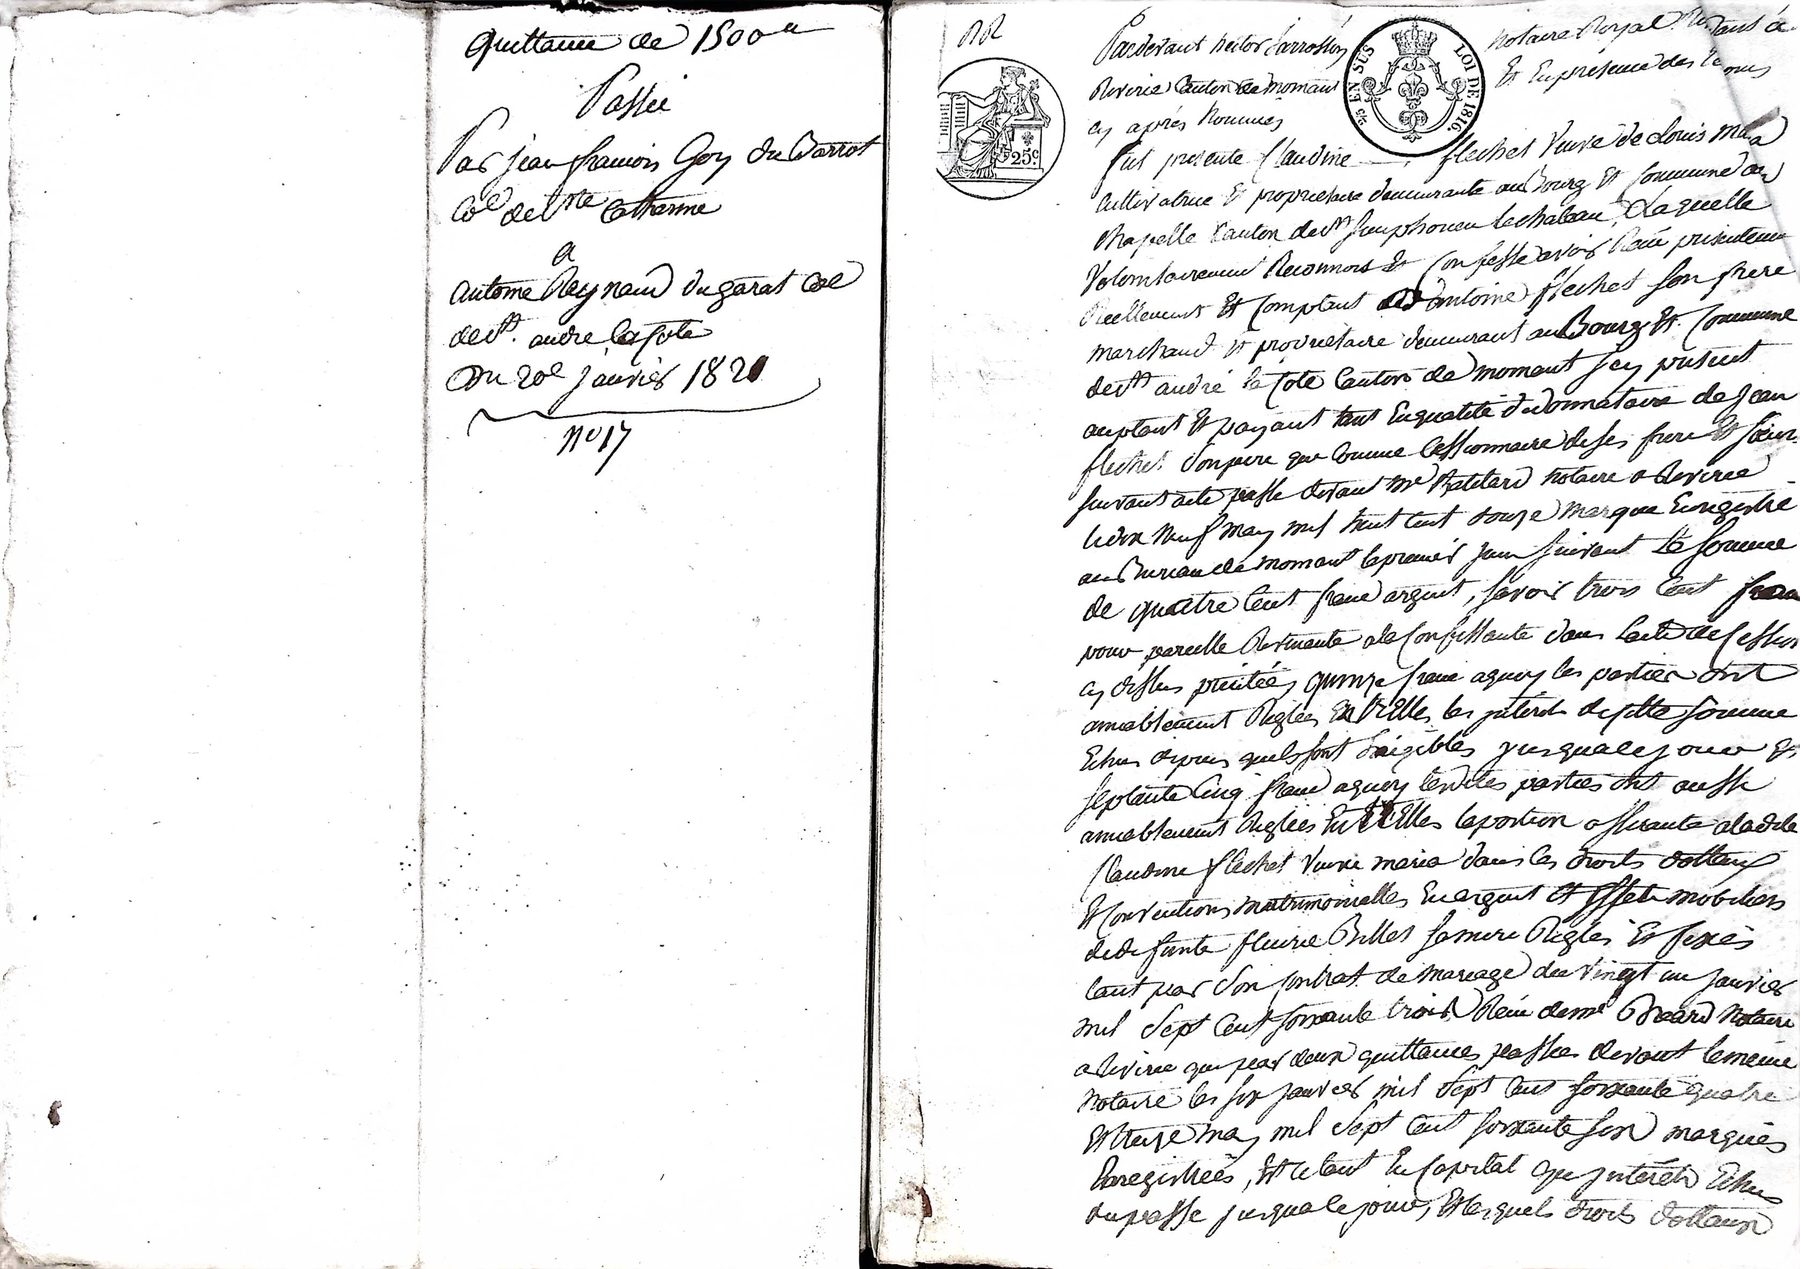 quittance de 1500 #
Passée
Par jean francois Goy du Barrot
Coe de Ste Catherine
a
antoine Reynaud du garat Coe
de St. andré la Cote
Du 20e janvier 1820
no 17
Pardevant hector Jarrosson notaire Royal
Riverie Canton de mornant Et En presence des temoins
cy après Nommés
25 EN SUS LOI DE 1816.
25c
fut presente Claudine flechet Veuve de Louis
cultivatrice Et proprietaire demeurante au Bourg Et Commune de
chapelle Canton de St Simphorien lechateau, Laquelle
Volontairement Reconnois Et Confesse avoir Reçu presentement
Reellement Et Comptant antoine flechet Son frere
marchand Et proprietaire demeurant au Bourg Et Commune
de St andré la Cote Canton de mornant Icy present
aceptant Et payant tant En qualité de donnataire de Jean
flechet Son pere que Comme Cessionnaire de ses frere Et Soeur
Suivant acte passé devant Me notaire a Riverie
le dix Neuf may mil huit Cent douze marqué Enregistré
au Bureau de mornant le premier juin Suivant la Somme
de quatre Cent franc argent, Savoir trois Cent franc
pour pareille Revenante a la Confessante dans l'acte de Cession
cy dessus précité, quinze franc a quoy les parties ont
amiablement Réglés Entr'Elles les interets de cette Somme
Echus depuis qu'ils sont Exigibles jusqua ce jour Et
Septante Cinq franc a quoy lesdites parties ont aussi
amiablement Réglés Entr'Elles la portion afferante a ladite
Claudine flechet Veuve dans les droits dottaux
Et Conventions matrimonielles En argent Et Effets mobiliers
de defunte fleurie Sa mere Réglés Et fixés
tant par Son Contrat de mariage du vingt un janvier
mil Sept Cent Soixante trois Reçu de me notaire
a Riverie que par deux quittances passées devant le meme
Notaire les Six janvier mil Sept Cent Soixante quatre
Et treize may mil Sept Cent Soixante Six marqués
Enregistrées, Et ce tant En Capital qu'interets Echus
du passé jusqua ce jour, Et lesquels droits dottaux